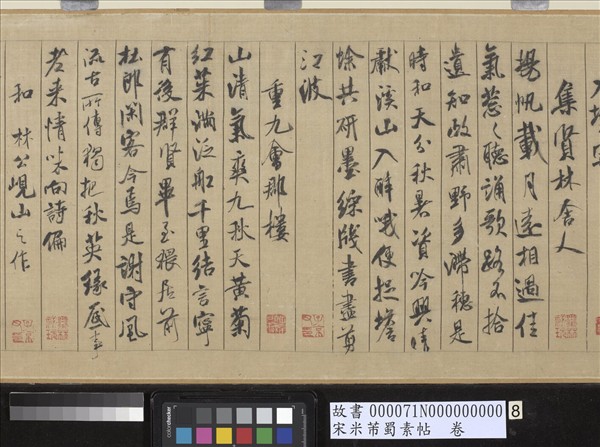 集賢林舍人
揚帆載月遠相過佳
氣蔥〻聽誦歌路不拾
遺知政肅野多滯穗是
時和天分秋暑資吟興晴
獻溪山入醉哦便捉蟾
蜍共研墨綵牋書盡剪
江波
重九會郡樓
山清氣爽九秋天黃菊
紅茱滿泛船千里結言寧
有後群賢畢至猥居前
杜郎閑客今焉是謝守風
流古所傳獨把秋英緣底事
老來情味向詩偏
和林公峴山之作
故書 000071N000000000 8
宋米芾蜀素帖 卷